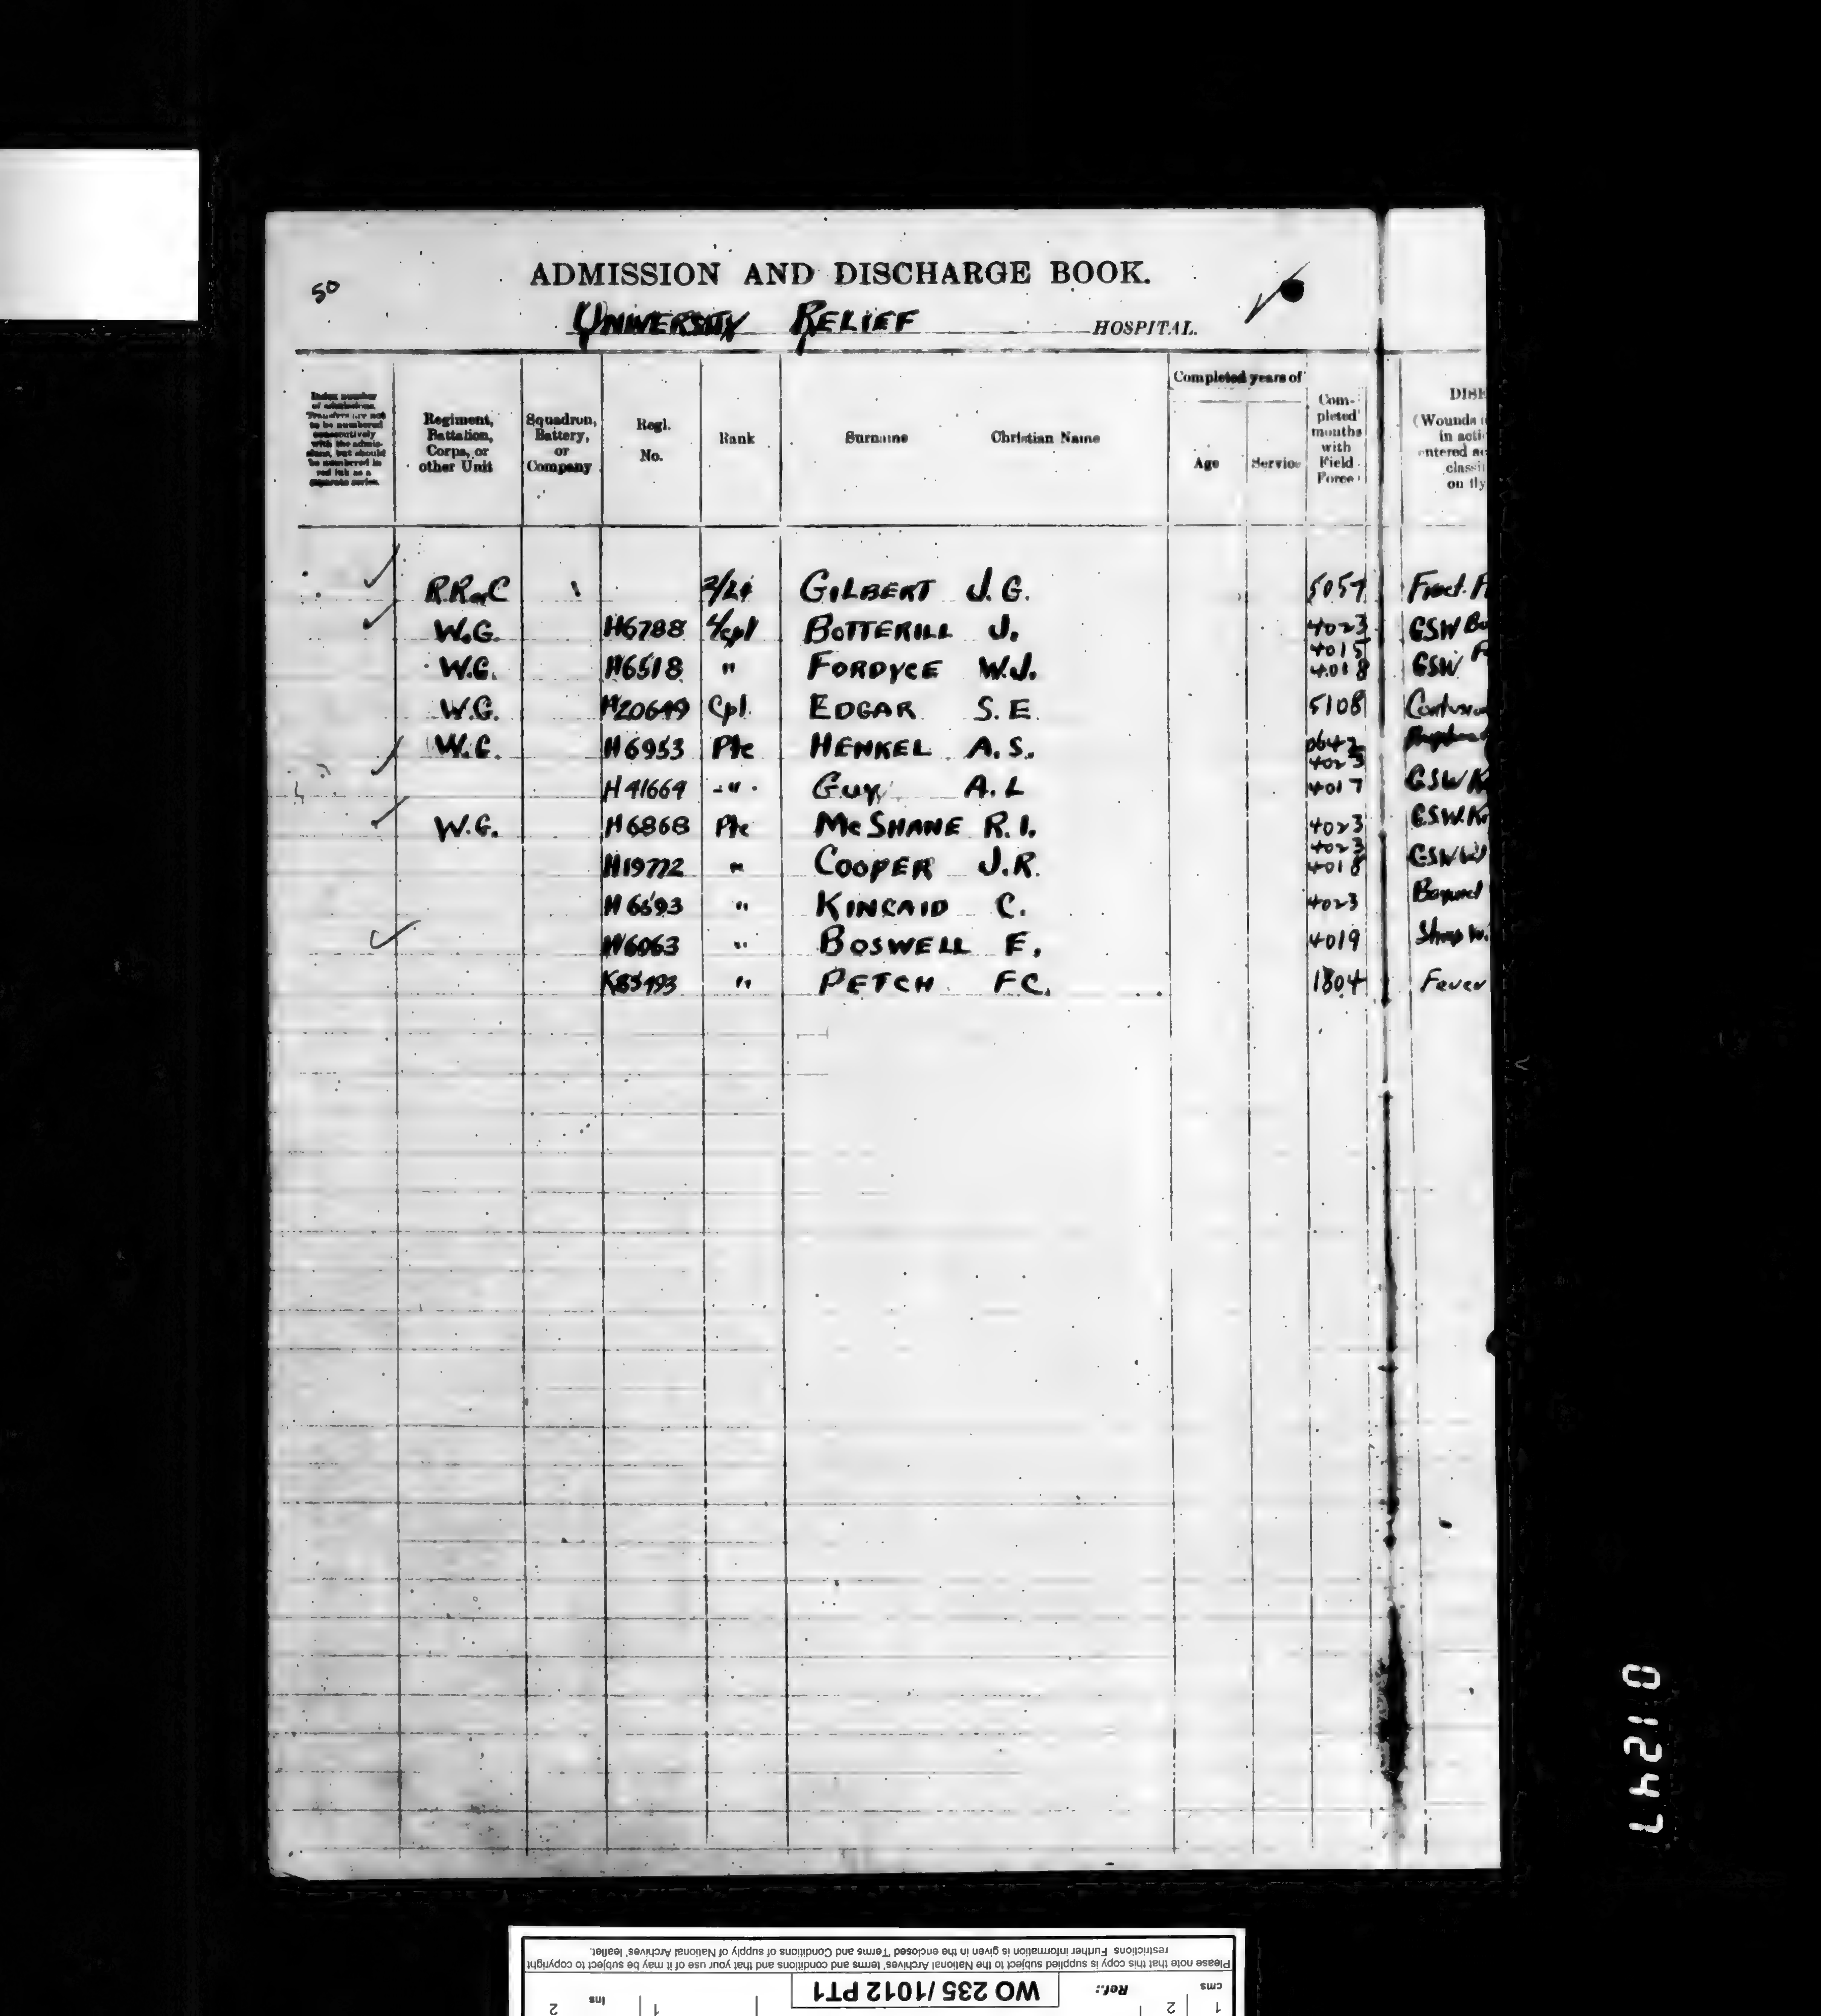 50
ADMISSION AND DISCHARGE BOOK.
UNIVERSITY RELIEF HOSPITAL.
Index number of admissions. Transfers are not to be numbered consecutively with the admissions, but should be numbered in red ink as a separate series.
Regiment, Battalion, Corps, or other Unit
Squadron, Battery, or Company
Regl. No.
Rank
Surname Christian Name
Completed years of
Age Service
Completed months with Field Force
DISE
(Wounds
in acti
entered ac
classi
on fly
GILBERT J.G. 5057 Fract.
W.G. H6788 L/Cpl BOTTERILL J. 4023 GSW
4015
W.G. H6518 " FORDYCE W.J. 4018 GSW
W.G. H20649 Cpl EDGAR S.E. 5108 Contusion
W.G. H6953 Pte HENKEL A.S.
4023
H41669 " GUY A.L 4017 GSW
W.G. H6868 Pte McSHANE R.I. 4023 G.S.W.
4023
H19772 " COOPER J.R. 4018 GSW
H6593 " KINCAID C. 4023
H6063 " BOSWELL E. 4019
K85493 " PETCH FC. 1804 Fever
01247
Please note that this copy is supplied subject to the National Archives' terms and conditions and that your use of it may be subject to copyright
restrictions. Further information is given in the enclosed 'Terms and Conditions of supply of National Archives' leaflet.
cms Ref.: WO 235/1012 PT1
1 2 1 ins 2